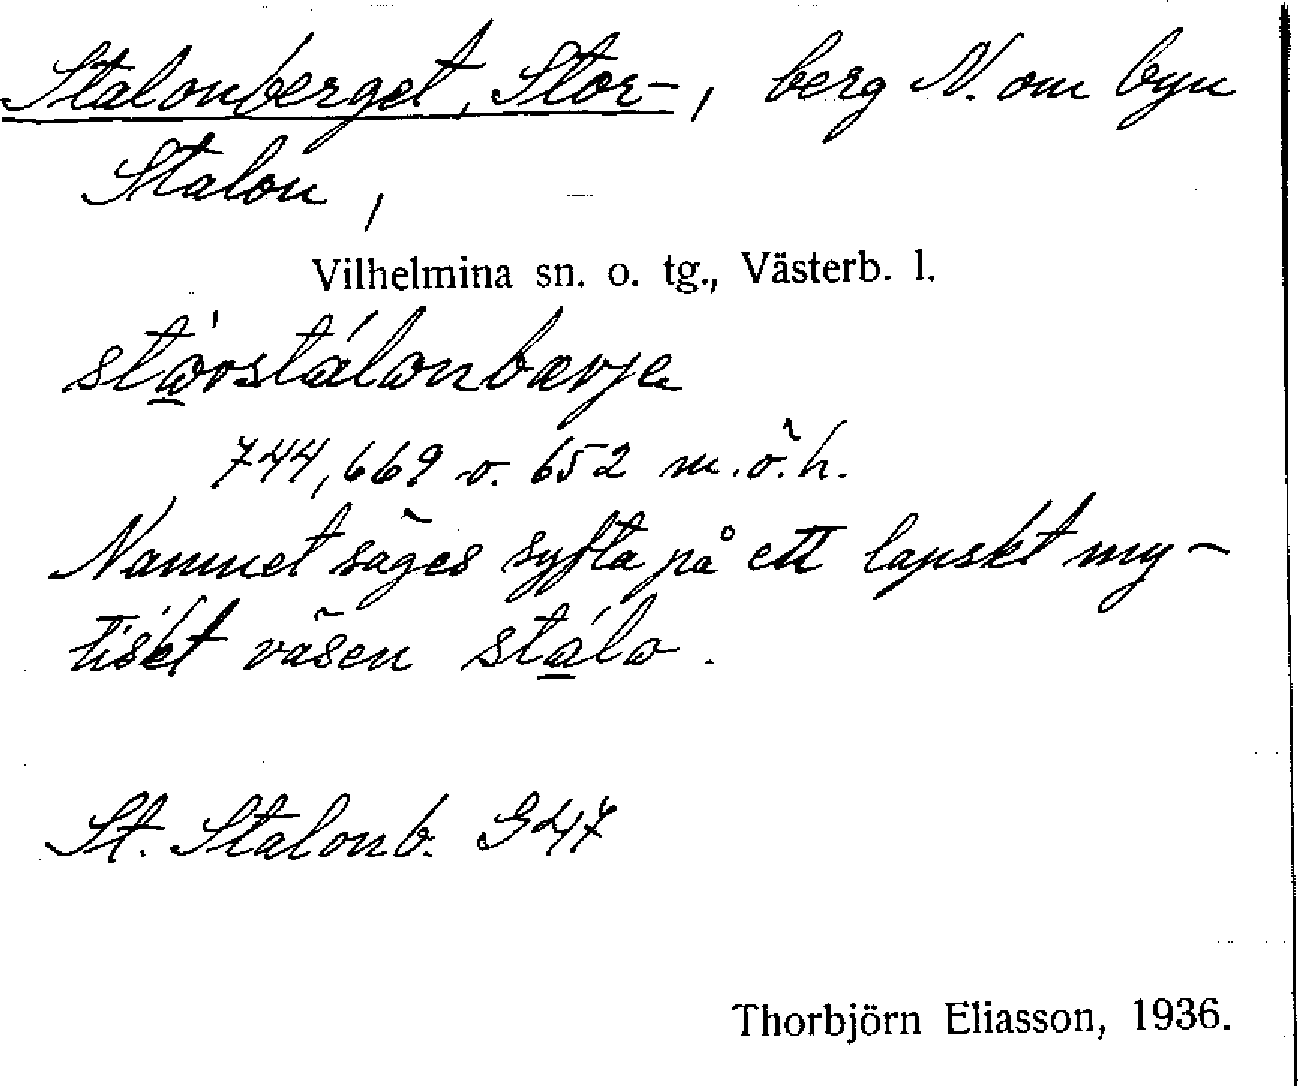 Stalonberget, Stor-, berg N. om byn
Stalon,
Vilhelmina sn. o. tg., Västerb. l.
744, 669 o. 652 m.ö.h.
Namnet säges syfta på ett lapskt my-
tiskt väsen stálo.
St. Stalonb. G47
Thorbjörn Eliasson, 1936.